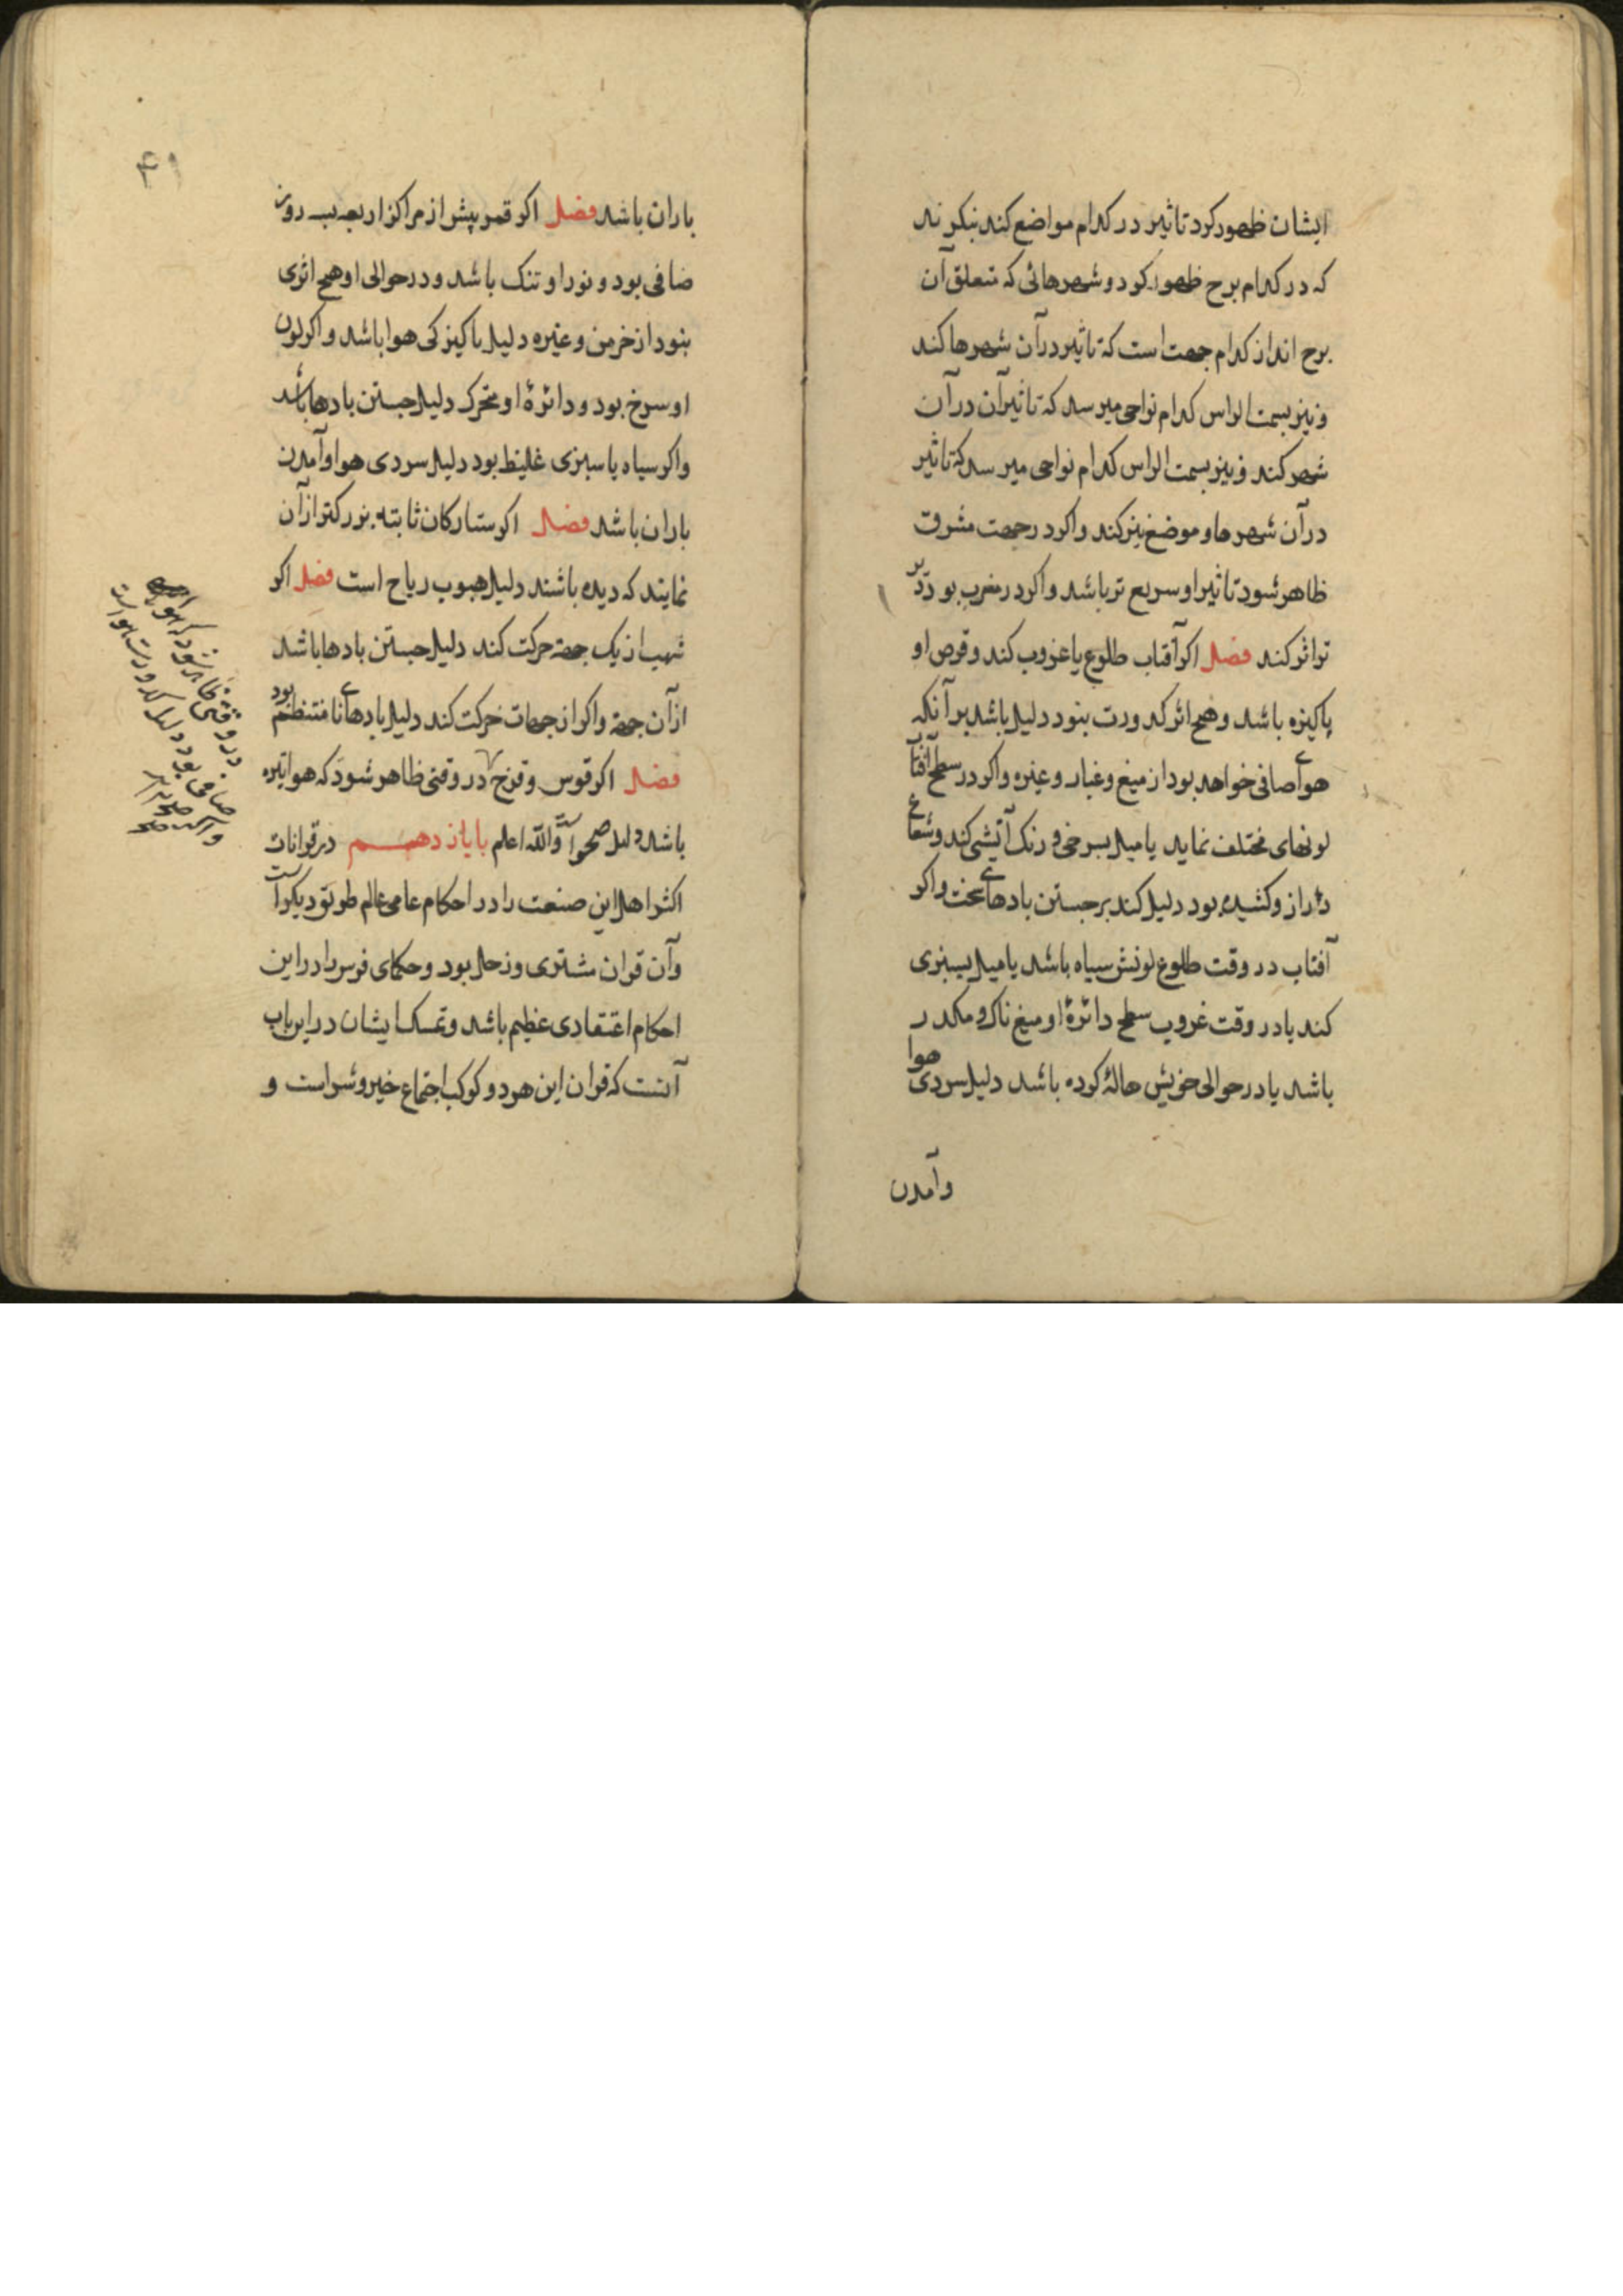 ایشان ظهور کرد تاثیر در کدام مواضع کند بنکرند
که در کدام برج ظهور کرد و شهرهائی که متعلق آن
برج اند از کدام جهت است که تاثیر در آن شهرها کند
و نیز بسمت الراس کدام نواحی میرسد که تاثیر آن در آن
شهر کند و نیز بسمت الراس کدام نواحی میرسد که تاثیر
در آن شهرها و موضع نیز کند واکر در جهت مشرق
ظاهر شود تاثیر او سریع تر باشد واکر در مغرب بود دیر
تر اثر کند فصل اکر آفتاب طلوع یا غروب کند و قرص او
پاکیزه باشد و هیچ اثر کدورت نبود دلیل باشد بر آنکه
هوای صافی خواهد بود از میغ و غبار و غیره واکر در سطح آفتاب
لونهای مختلف نماید یا میل بسرخی و رنک آتشی کند و شعاع
دراز و کشیده بود دلیل کند بر جستن بادهای سخت واکر
آفتاب در وقت طلوع لونش سیاه باشد یا میل بسبزی
کند یا در وقت غروب سطح دائرهٔ او میغ ناک و مکدر
باشد یا در حوالی خویش هالهٔ کرده باشد دلیل سردی هوا
وآمدن
۴۱
باران باشد فصل اکر قمر پیش از مراکز اربعه بسه روز
صافی بود و نور او تنک باشد و در حوالی او هیچ اثری
نبود از خرمن و غیره دلیل پاکیزکی هوا باشد واکر لون
او سرخ بود و دائرهٔ او متحرک دلیل جستن بادها باشد
واکر سیاه یا سبزی غلیظ بود دلیل سردی هوا و آمدن
باران باشد فصل اکر ستارکان ثابته بزرکتر از آن
نمایند که دیده باشند دلیل هبوب ریاح است فصل اکر
شهب از یک جهة حرکت کند دلیل جستن بادها باشد
از آن جهة واکر از جهات حرکت کند دلیل بادهای نامنتظم بود
فصل اکر قوس و قزح در وقتی ظاهر شود که هوا تیره
باشد دلیل صحو است والله اعلم باب یازدهم در قرانات
اکثر اهل این صنعت را در احکام عامی عالم طریق دیکر است
وآن قران مشتری و زحل بود و حکمای فرس را در این
احکام اعتقادی عظیم باشد و تمسک ایشان در این باب
آنست که قران این هر دو کوکب اجتماع خیر و شر است و
در وقتی ظاهر شود که هوا
صافی بود دلیل کدورت هواست